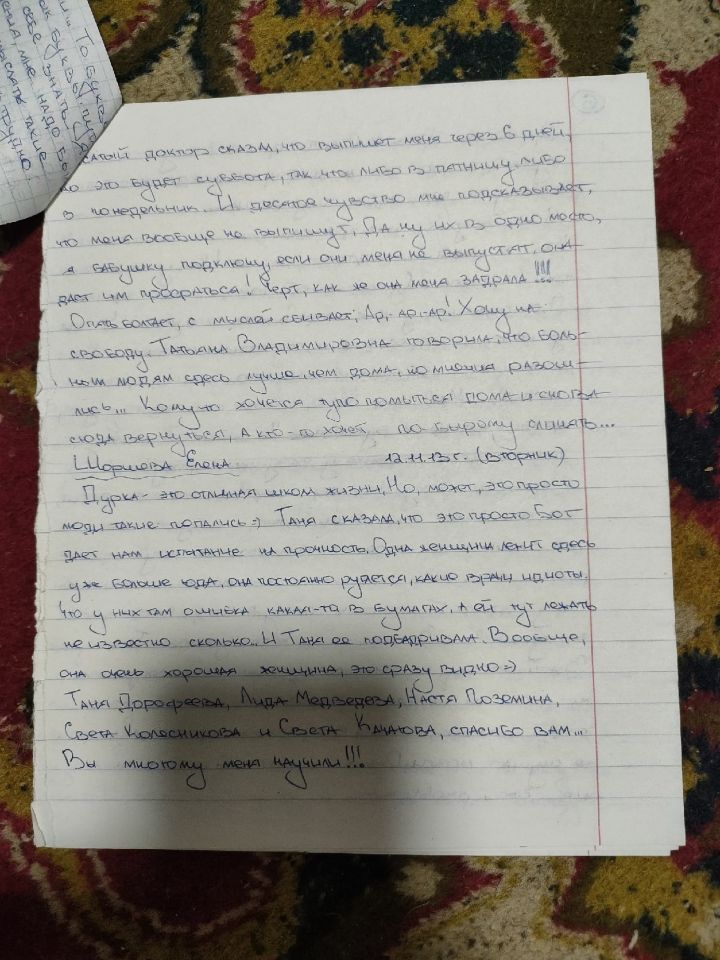 и.. То букв
ок буквы
себе знать
мне надо бо
такие
трудно
сатый доктор сказал, что выпишет меня через 6 дней,
но это будет суббота, так что либо в пятницу, либо
в понедельник. И десятое чувство мне подсказывает,
что меня вообще не выпишут. Да ну их в одно место,
я бабушку подключу, если они меня не выпустят, она
даст им просраться! Черт, как же она меня задрала!!!
Опять болтает, с мыслей сбивает; Ар,-ар,-ар! Хочу на
свободу. Татьяна Владимировна говорила, что боль-
ным людям здесь лучше, чем дома, но мнения разош-
лись... Кому-то хочется тупо помыться дома и снова
сюда вернуться, а кто-то хочет по-бырому слинять...
Елена 12.11.13 г. (вторник)
Дурка - это отличная школа жизни, Но, может, это просто
люди такие попались =) Таня сказала, что это просто Бог
дает нам испытание на прочность. Одна женщина лежит здесь
уже больше года, она постоянно ругается, какие врачи идиоты.
Что у них там ошибка какая-то в бумагах, а ей тут лежать
неизвестно сколько.. И Таня ее подбадривала. Вообще,
она очень хорошая женщина, это сразу видно =)
Таня Дорофеева, Лида Медведева, Настя Поземина,
Света Колесникова и Света Качатова, спасибо вам...
Вы многому меня научили!!!